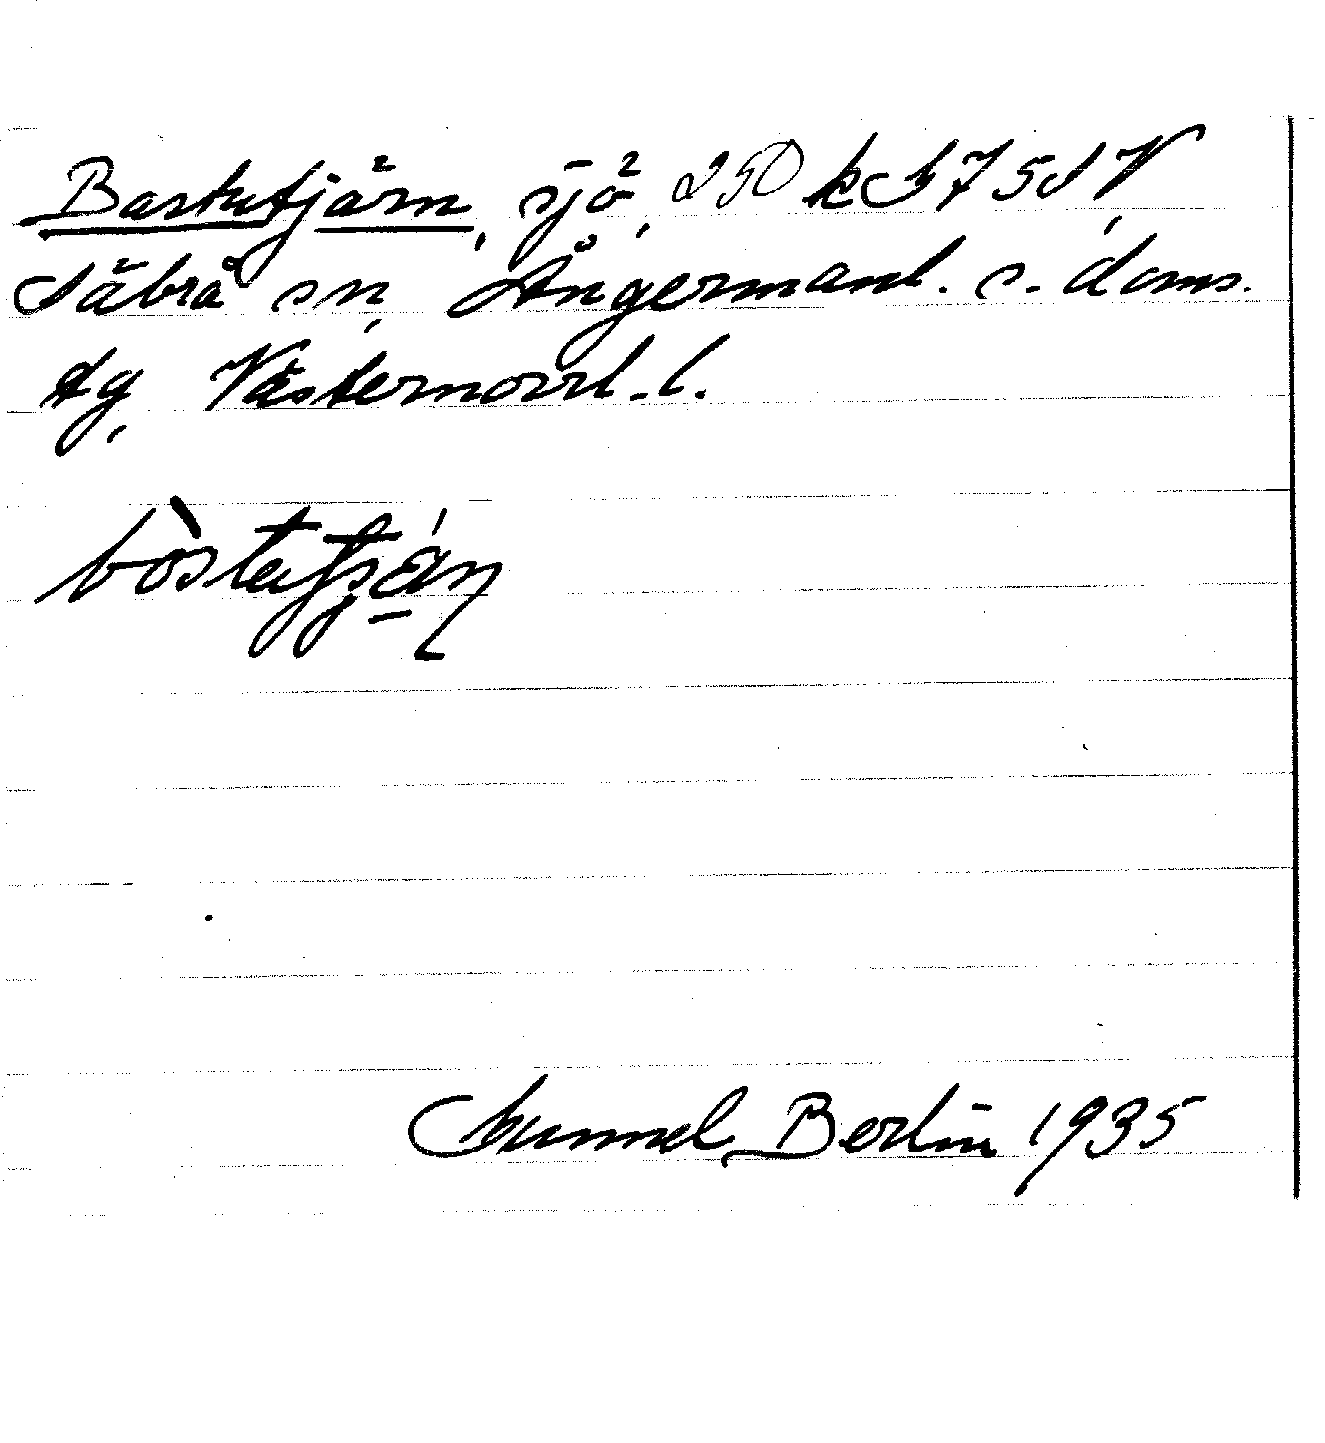 Bastutjärn, sjö, 250 k S 7 5 d V,
Säbrå sn, Ångermanl. s. doms.
tg, Västernorrl. l.
Gunnel Berlin 1935